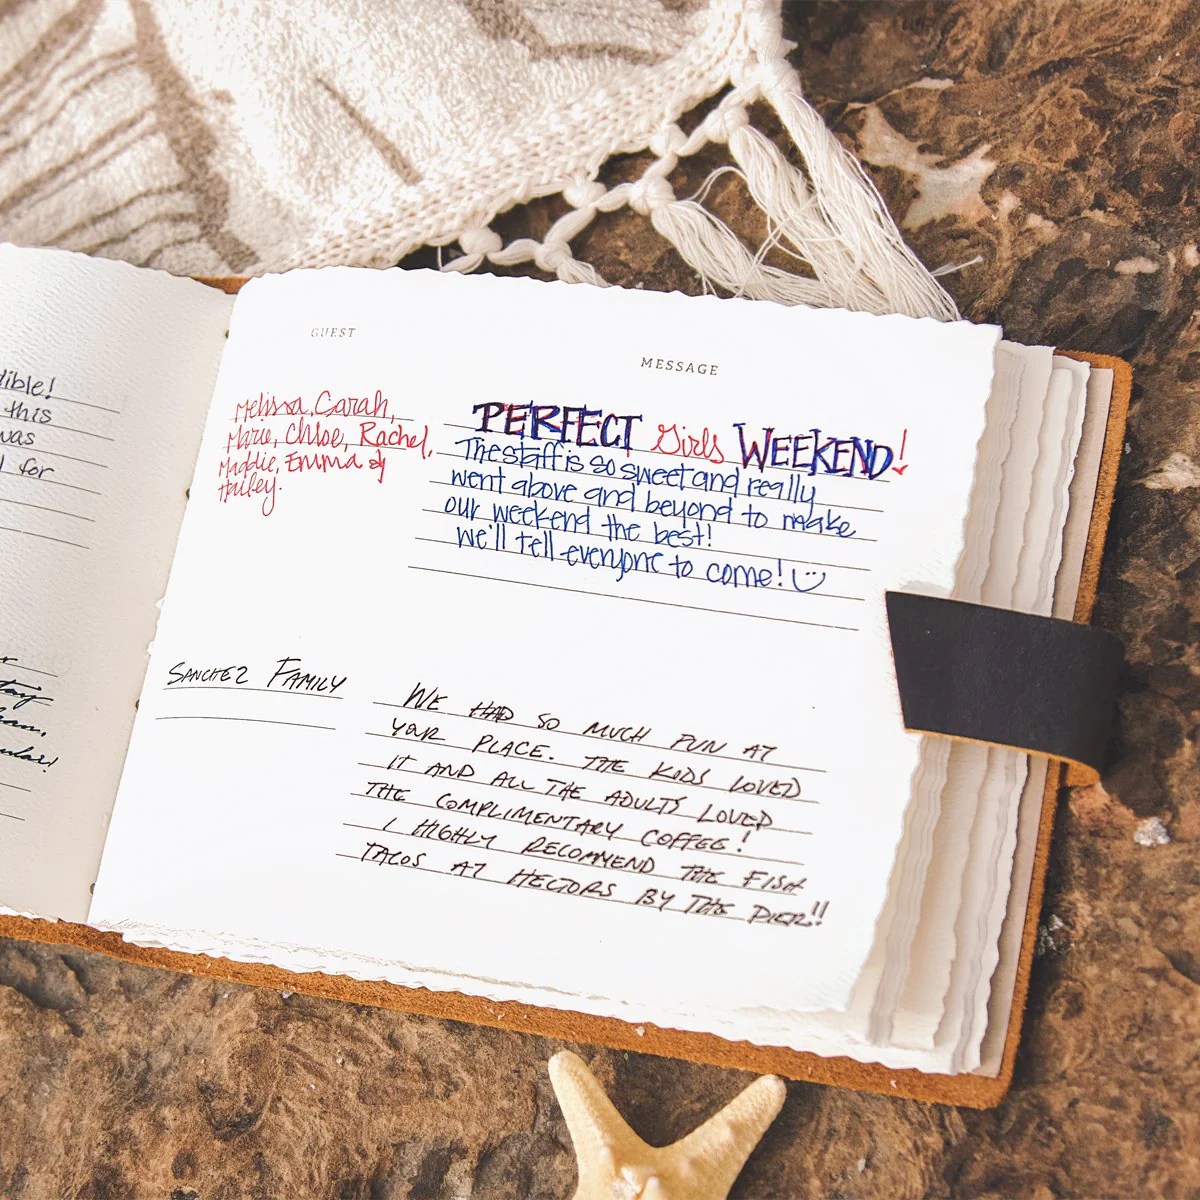 dible!
this
was
for
GUEST
MESSAGE
Melissa, Carah,
Marie, Chloe, Rachel,
Maddie, Emma &
Hailey.
PERFECT Girls WEEKEND!
The staff is so sweet and really
went above and beyond to make
our weekend the best!
we'll tell everyone to come!
SANCHEZ FAMILY
WE HAD SO MUCH FUN AT
YOUR PLACE. THE KIDS LOVED
IT AND ALL THE ADULTS LOVED
THE COMPLIMENTARY COFFEE!
I HIGHLY RECOMMEND THE FISH
TACOS AT HECTORS BY THE PIER!!